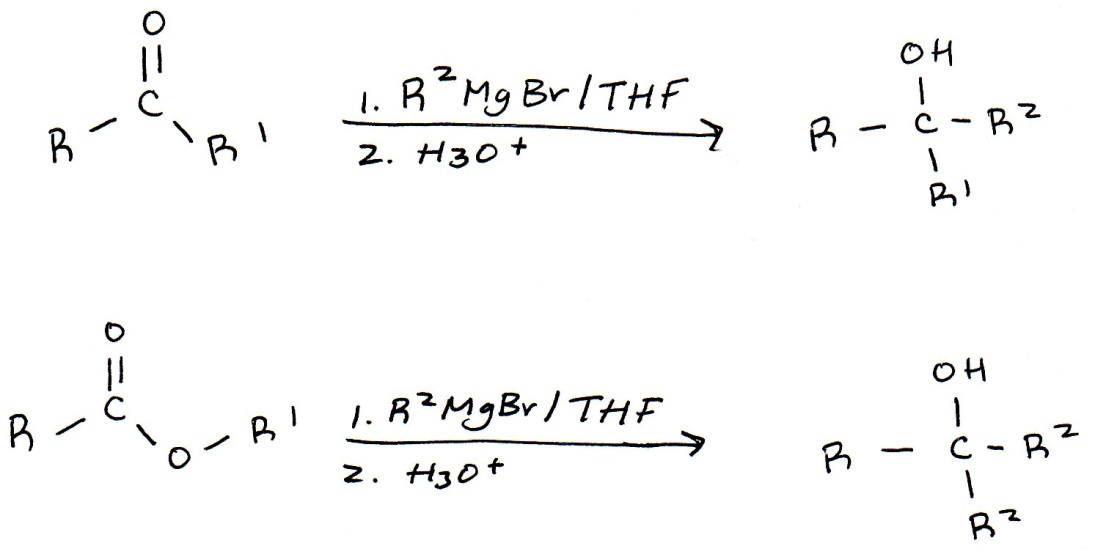 O
||
C
R
R¹
1. R²MgBr/THF
2. H3O+
OH
R - C - R²
R¹
O
||
C
R
O
R¹
1. R²MgBr/THF
2. H3O+
OH
R - C - R²
R²